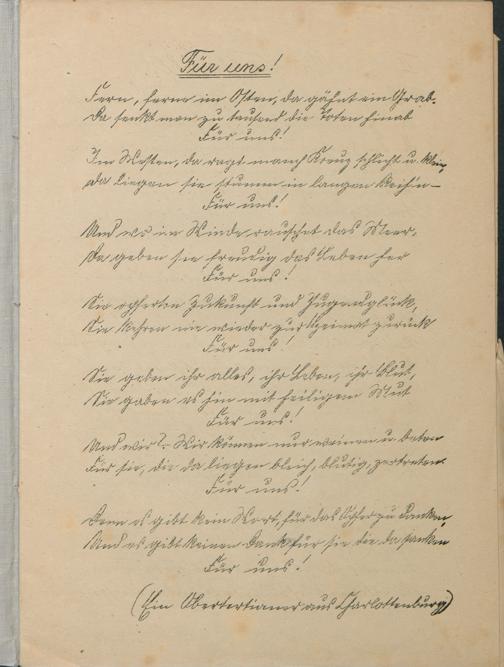 Für uns!
Fern, ferne im Osten, da gähnt ein Grab.
Da senkt man zu tausend die Toten hinab
Für uns!
Im Westen, da ragt manch Kreuz schlicht u. klein,
Da liegen sie stumm in langen Reih'n –
Für uns!
Und wo im Winde rauschet das Meer,
Da geben sie freudig das Leben her
Für uns!
Sie opferten Zukunft und Jugendglück,
Sie kehren nie wieder zur Heimat zurück
Für uns!
Sie geben ihr alles, ihr Leben, ihr Blut,
Sie gaben es hin mit heiligem Mut
Für uns!
Und wir? Wir können nur weinen u. beten
Für sie, die da liegen bleich, blutig, zertreten.
Für uns!
Denn es gibt kein Wort, für das Opfer zu danken,
Und es gibt keinen Dank für sie die da sanken
Für uns!
(Ein Obertertianer aus Charlottenburg)